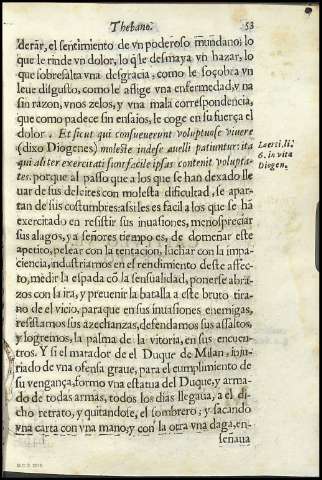 Thebano. 53
derar, el sentimiento de vn poderoso mundano; lo
que le rinde vn dolor, lo q̃ le desmaya vn hazar, lo
que sobresalta vna desgracia, como le soçobra vn
leue disgusto, como le aflige vna enfermedad, vna
sin razon, vnos zelos, y vna mala correspondencia,
que como padece sin ensaios, le coge en su fuerça el
dolor. Et sicut qui consueuerunt voluptuose viuere
(dixo Diogenes) moleste indese auelli patiuntur: ita
qui aliter exercitati sunt facile ipsas contenit volupta-
tes. porque al passo que a los que se han dexado lle
uar de sus deleites con molesta dificultad, se apar-
tan de sus costumbres: assi les es facil a los que se hã
exercitado en resistir sus inuasiones, menospreciar
sus alagos, y a señores tiempo es, de domeñar este
apetito, pelear con la tentacion, luchar con la impa-
ciencia, industriarnos en el rendimiento deste affec-
to, medir la espada cõ la sensualidad, ponerse abra-
zos con la ira, y preuenir la batalla a este bruto tira-
no de el vicio, para que en sus inuasiones enemigas,
resistamos sus azechanzas, defendamos sus assaltos,
y logremos, la palma de la vitoria, en sus encuen-
tros. Y si el matador de el Duque de Milan, inju-
riado de vna ofensa graue, para el cumplimiento de
su vengança, formo vna estatua del Duque, y arma-
do de todas armas, todos los dias llegaua, a el di-
cho retrato, y quitandose, el sombrero; y sacando
vna carta con vna mano; y con la otra vna daga, en-
senaua
Laerti. li.
6. in vita
Diogen.